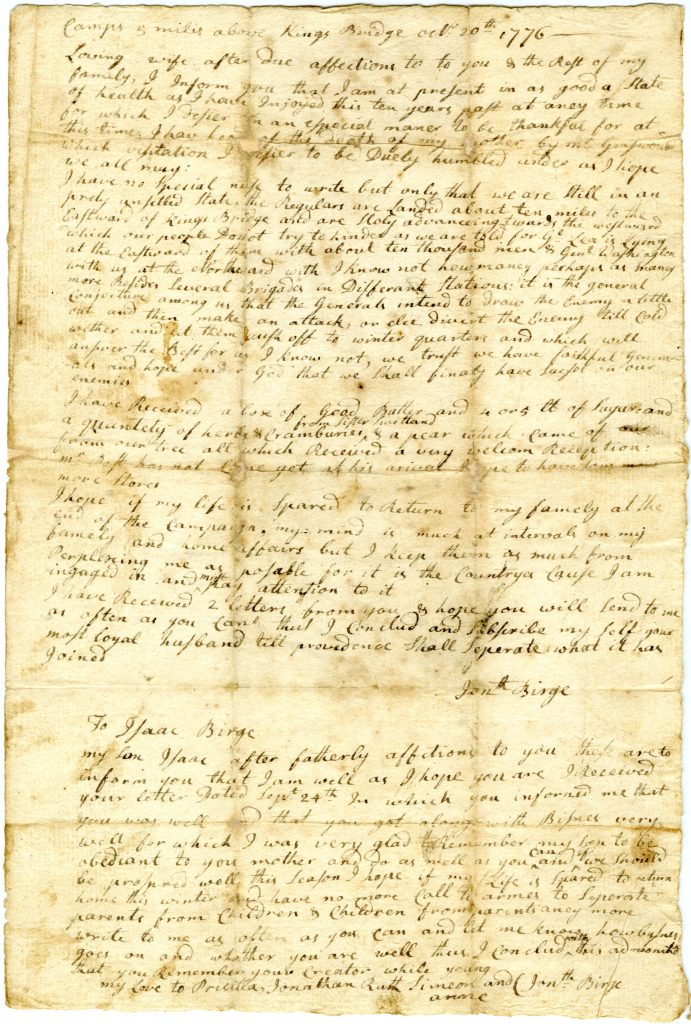 Camp 5 miles above Kings Bridge octr 20th 1776
Loving wife after due affections to to you & the Rest of my
family, I Inform you that I am at present in as good a State
of health as I have Injoyed this ten years past at aney time
for which I desier in an especial maner to be thankful for at
this time I hav heard of the death of my mother by mr
which visitation I desier to be Duely humbled under as I hope
we all may:
I have no special nuse to write but only that we are still in an
prely unsetled State, the Regulars are Landed about ten miles to the
Eastward of Kings Bridge and are sloly advancing twards the westward
which our people Donot try to hinder as we are told for Gl Lea is Lying
at the Eastward of them with about ten thousand men & Genl Washington
with us at the Northward with I know not how maney perhaps as maney
more Besides several Brigads in Different Stations: it is the general
Conjecture among us that the Generals intend to draw the Enemy a little
out and then make an attack, or elce divert the Enemy till Cold
wether and let them push off to winter quarters and which will
answer the Best for as I know not, we trust we have faithful Gener
als and hope under God that we shall finaly have sucses on our
enemies
I have Received a box of Good Butter and 4 or 5 lt of Sugar and
a quantety of herbs & Cramburies from sister Swetland & a pear which Came of our
from our tree all which Received a very welcom Reception:
mr Post has not Come yet at his arival I hope to have som more
more stores
I hope if my life is spared to Return to my famely at the
end of the Campaign. my mind is much at intervals on my
famely and home affairs but I keep them as much from
Perplexing me as posable for it is the Countrys Cause I am
ingaged in and must pay attention to it
I have Received 2 letters from you & hope you will send to me
as often as you Can thus I Conclud and subscribe my self your
most loyal husband till providence shall seperate what it has
Joined
Jonth Birge
To Isaac Birge
my son Isaac after fatherly affctions to you these are to
inform you that I am well as I hope you are I Received
your letter Dated Sept 24th In which you informed me that
you was well and that you got along with Bisnes very
well for which I was very glad Remember my son to be
obediant to you mother and do as well as you can and if we should
be prospred well this Season I hope if my Life is spared to return
home this winter and have no more Call to armes to Seperate
parents from Children & Children from parents aney more
write to me as often as you Can and let me know how bisnes
goes on and whether you are well thus I Conclud with this admonition
that you Remember your Creator while young
my Love to Pricilla, Jonathan Ruth Simeon and Jonth Birge
anne